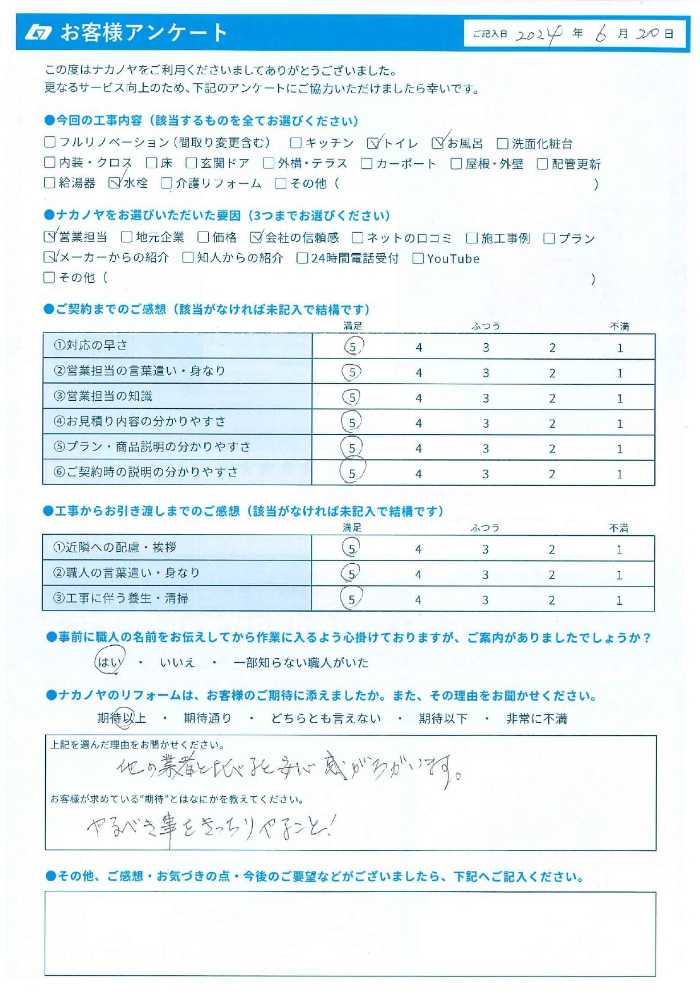 お客様アンケート
ご記入日 2024 年 6 月 20 日
この度はナカノヤをご利用くださいましてありがとうございました。
更なるサービス向上のため、下記のアンケートにご協力いただけましたら幸いです。
●今回の工事内容（該当するものを全てお選びください）
□フルリノベーション（間取り変更含む） □キッチン ☑トイレ ☑お風呂 □洗面化粧台
□内装・クロス □床 □玄関ドア □外構・テラス □カーポート □屋根・外壁 □配管更新
□給湯器 ☑水栓 □介護リフォーム □その他（ ）
●ナカノヤをお選びいただいた要因（3つまでお選びください）
☑営業担当 □地元企業 □価格 ☑会社の信頼感 □ネットの口コミ □施工事例 □プラン
☑メーカーからの紹介 □知人からの紹介 □24時間電話受付 □YouTube
□その他（ ）
●ご契約までのご感想（該当がなければ未記入で結構です）
満足 ふつう 不満
①対応の早さ 5 4 3 2 1
②営業担当の言葉遣い・身なり 5 4 3 2 1
③営業担当の知識 5 4 3 2 1
④お見積り内容の分かりやすさ 5 4 3 2 1
⑤プラン・商品説明の分かりやすさ 5 4 3 2 1
⑥ご契約時の説明の分かりやすさ 5 4 3 2 1
●工事からお引き渡しまでのご感想（該当がなければ未記入で結構です）
満足 ふつう 不満
①近隣への配慮・挨拶 5 4 3 2 1
②職人の言葉遣い・身なり 5 4 3 2 1
③工事に伴う養生・清掃 5 4 3 2 1
●事前に職人の名前をお伝えしてから作業に入るよう心掛けておりますが、ご案内がありましたでしょうか？
はい ・ いいえ ・ 一部知らない職人がいた
●ナカノヤのリフォームは、お客様のご期待に添えましたか。また、その理由をお聞かせください。
期待以上 ・ 期待通り ・ どちらとも言えない ・ 期待以下 ・ 非常に不満
上記を選んだ理由をお聞かせください。
他の業者と比べると安心感がちがいます。
お客様が求めている"期待"とはなにかを教えてください。
やるべき事をきっちりやること！
●その他、ご感想・お気づきの点・今後のご要望などがございましたら、下記へご記入ください。